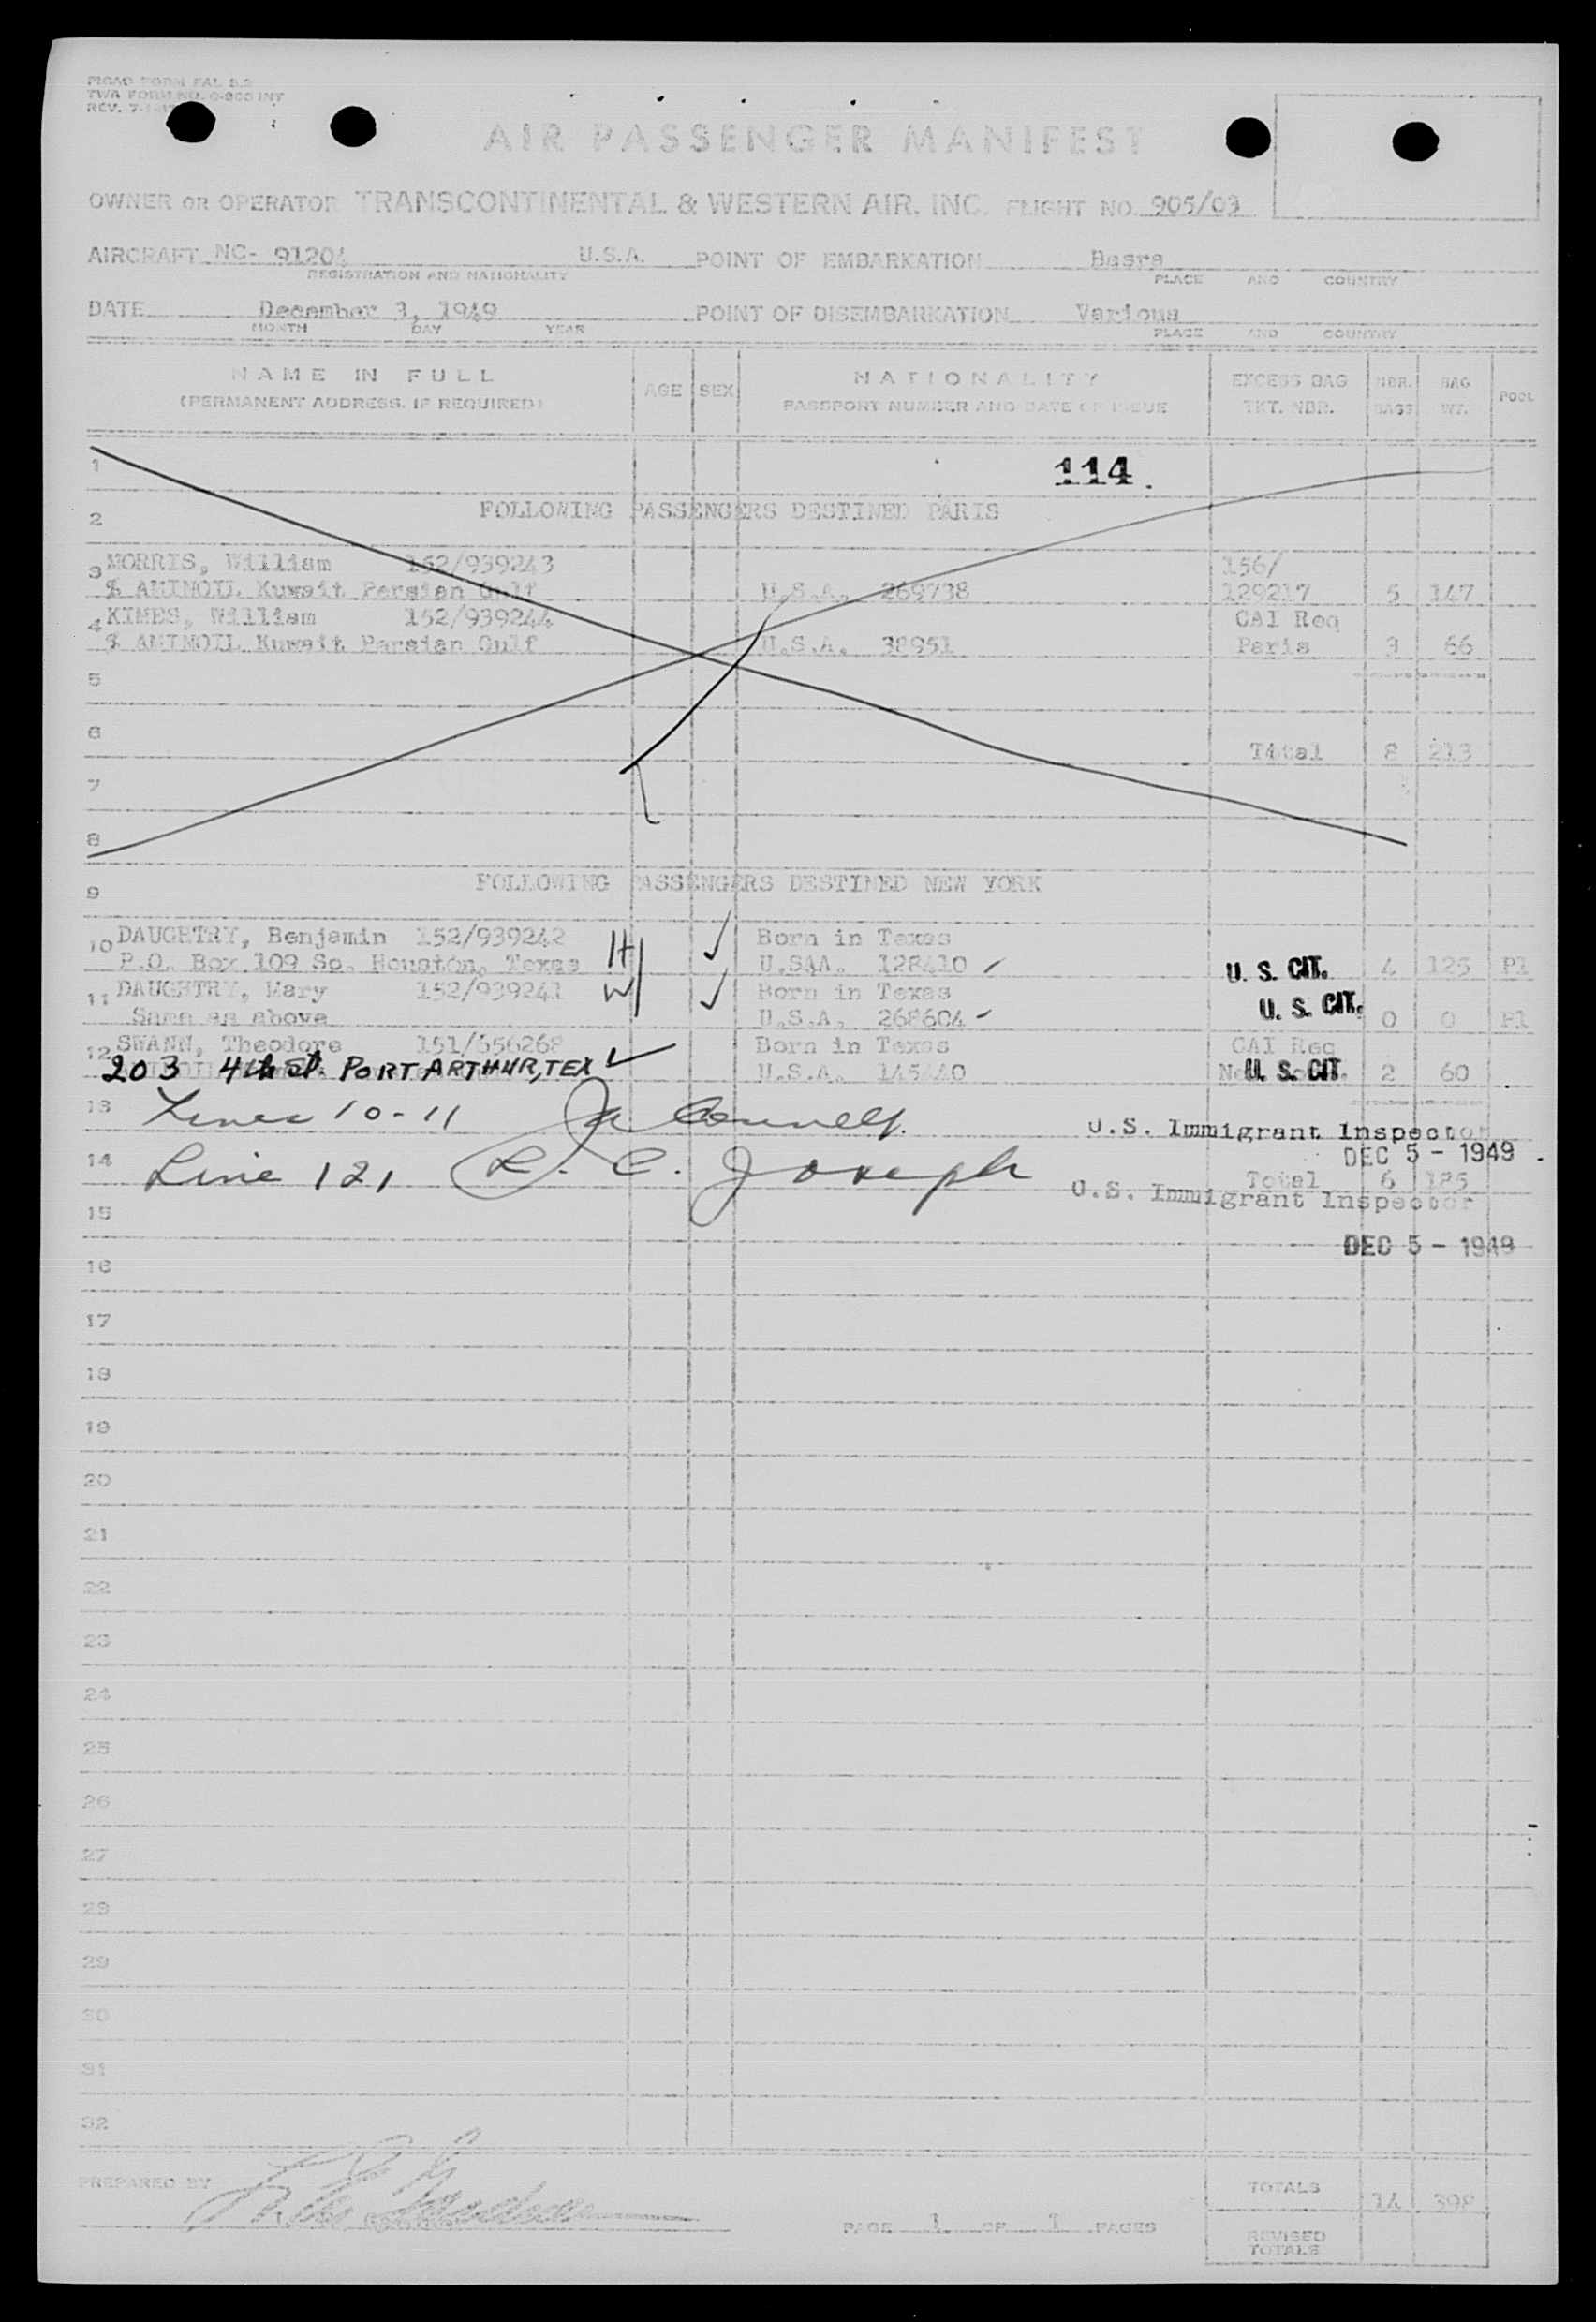 PICAO FORM FAL 5.2
TWA FORM NO. O-900 INT
REV. 7-1-47
AIR PASSENGER MANIFEST
OWNER OR OPERATOR TRANSCONTINENTAL & WESTERN AIR, INC. FLIGHT NO. 905/03
AIRCRAFT NC- 91204 U.S.A. POINT OF EMBARKATION Basra
REGISTRATION AND NATIONALITY PLACE AND COUNTRY
DATE December 3, 1949 POINT OF DISEMBARKATION Various
MONTH DAY YEAR PLACE AND COUNTRY
NAME IN FULL AGE SEX NATIONALITY EXCESS BAG NBR. BAG POOL
(PERMANENT ADDRESS, IF REQUIRED) PASSPORT NUMBER AND DATE OF ISSUE TKT. NBR. BAGS WT.
1 114
2 FOLLOWING PASSENGERS DESTINED PARIS
3 MORRIS, William 152/939243 156/
% AMINOIL Kuwait Persian Gulf U.S.A. 269738 129217 5 147
4 KIMES, William 152/939244 CAI Req
% AMINOIL Kuwait Persian Gulf U.S.A. 38951 Paris 3 66
5
6 Total 8 213
7
8
9 FOLLOWING PASSENGERS DESTINED NEW YORK
10 DAUGHTRY, Benjamin 152/939242 H Born in Texas
P.O. Box 109 So. Houston, Texas U.S.A. 128410 U. S. CIT. 4 125 Pl
11 DAUGHTRY, Mary 152/939241 W Born in Texas
Same as above U.S.A. 268604 U. S. CIT. 0 0 Pl
12 SWANN, Theodore 151/556268 Born in Texas CAI Req
203 4th St. PORT ARTHUR, TEX U.S.A. 145440 U. S. CIT 2 60
13 Lines 10-11 U.S. Immigrant Inspector
DEC 5 - 1949
14 Line 12, L. C. Joseph Total 6 185
U.S. Immigrant Inspector
15
DEC 5 - 1949
16
17
18
19
20
21
22
23
24
25
26
27
28
29
30
31
32
PREPARED BY
TOTALS 14 398
PAGE 1 OF 1 PAGES
REVISED
TOTALS